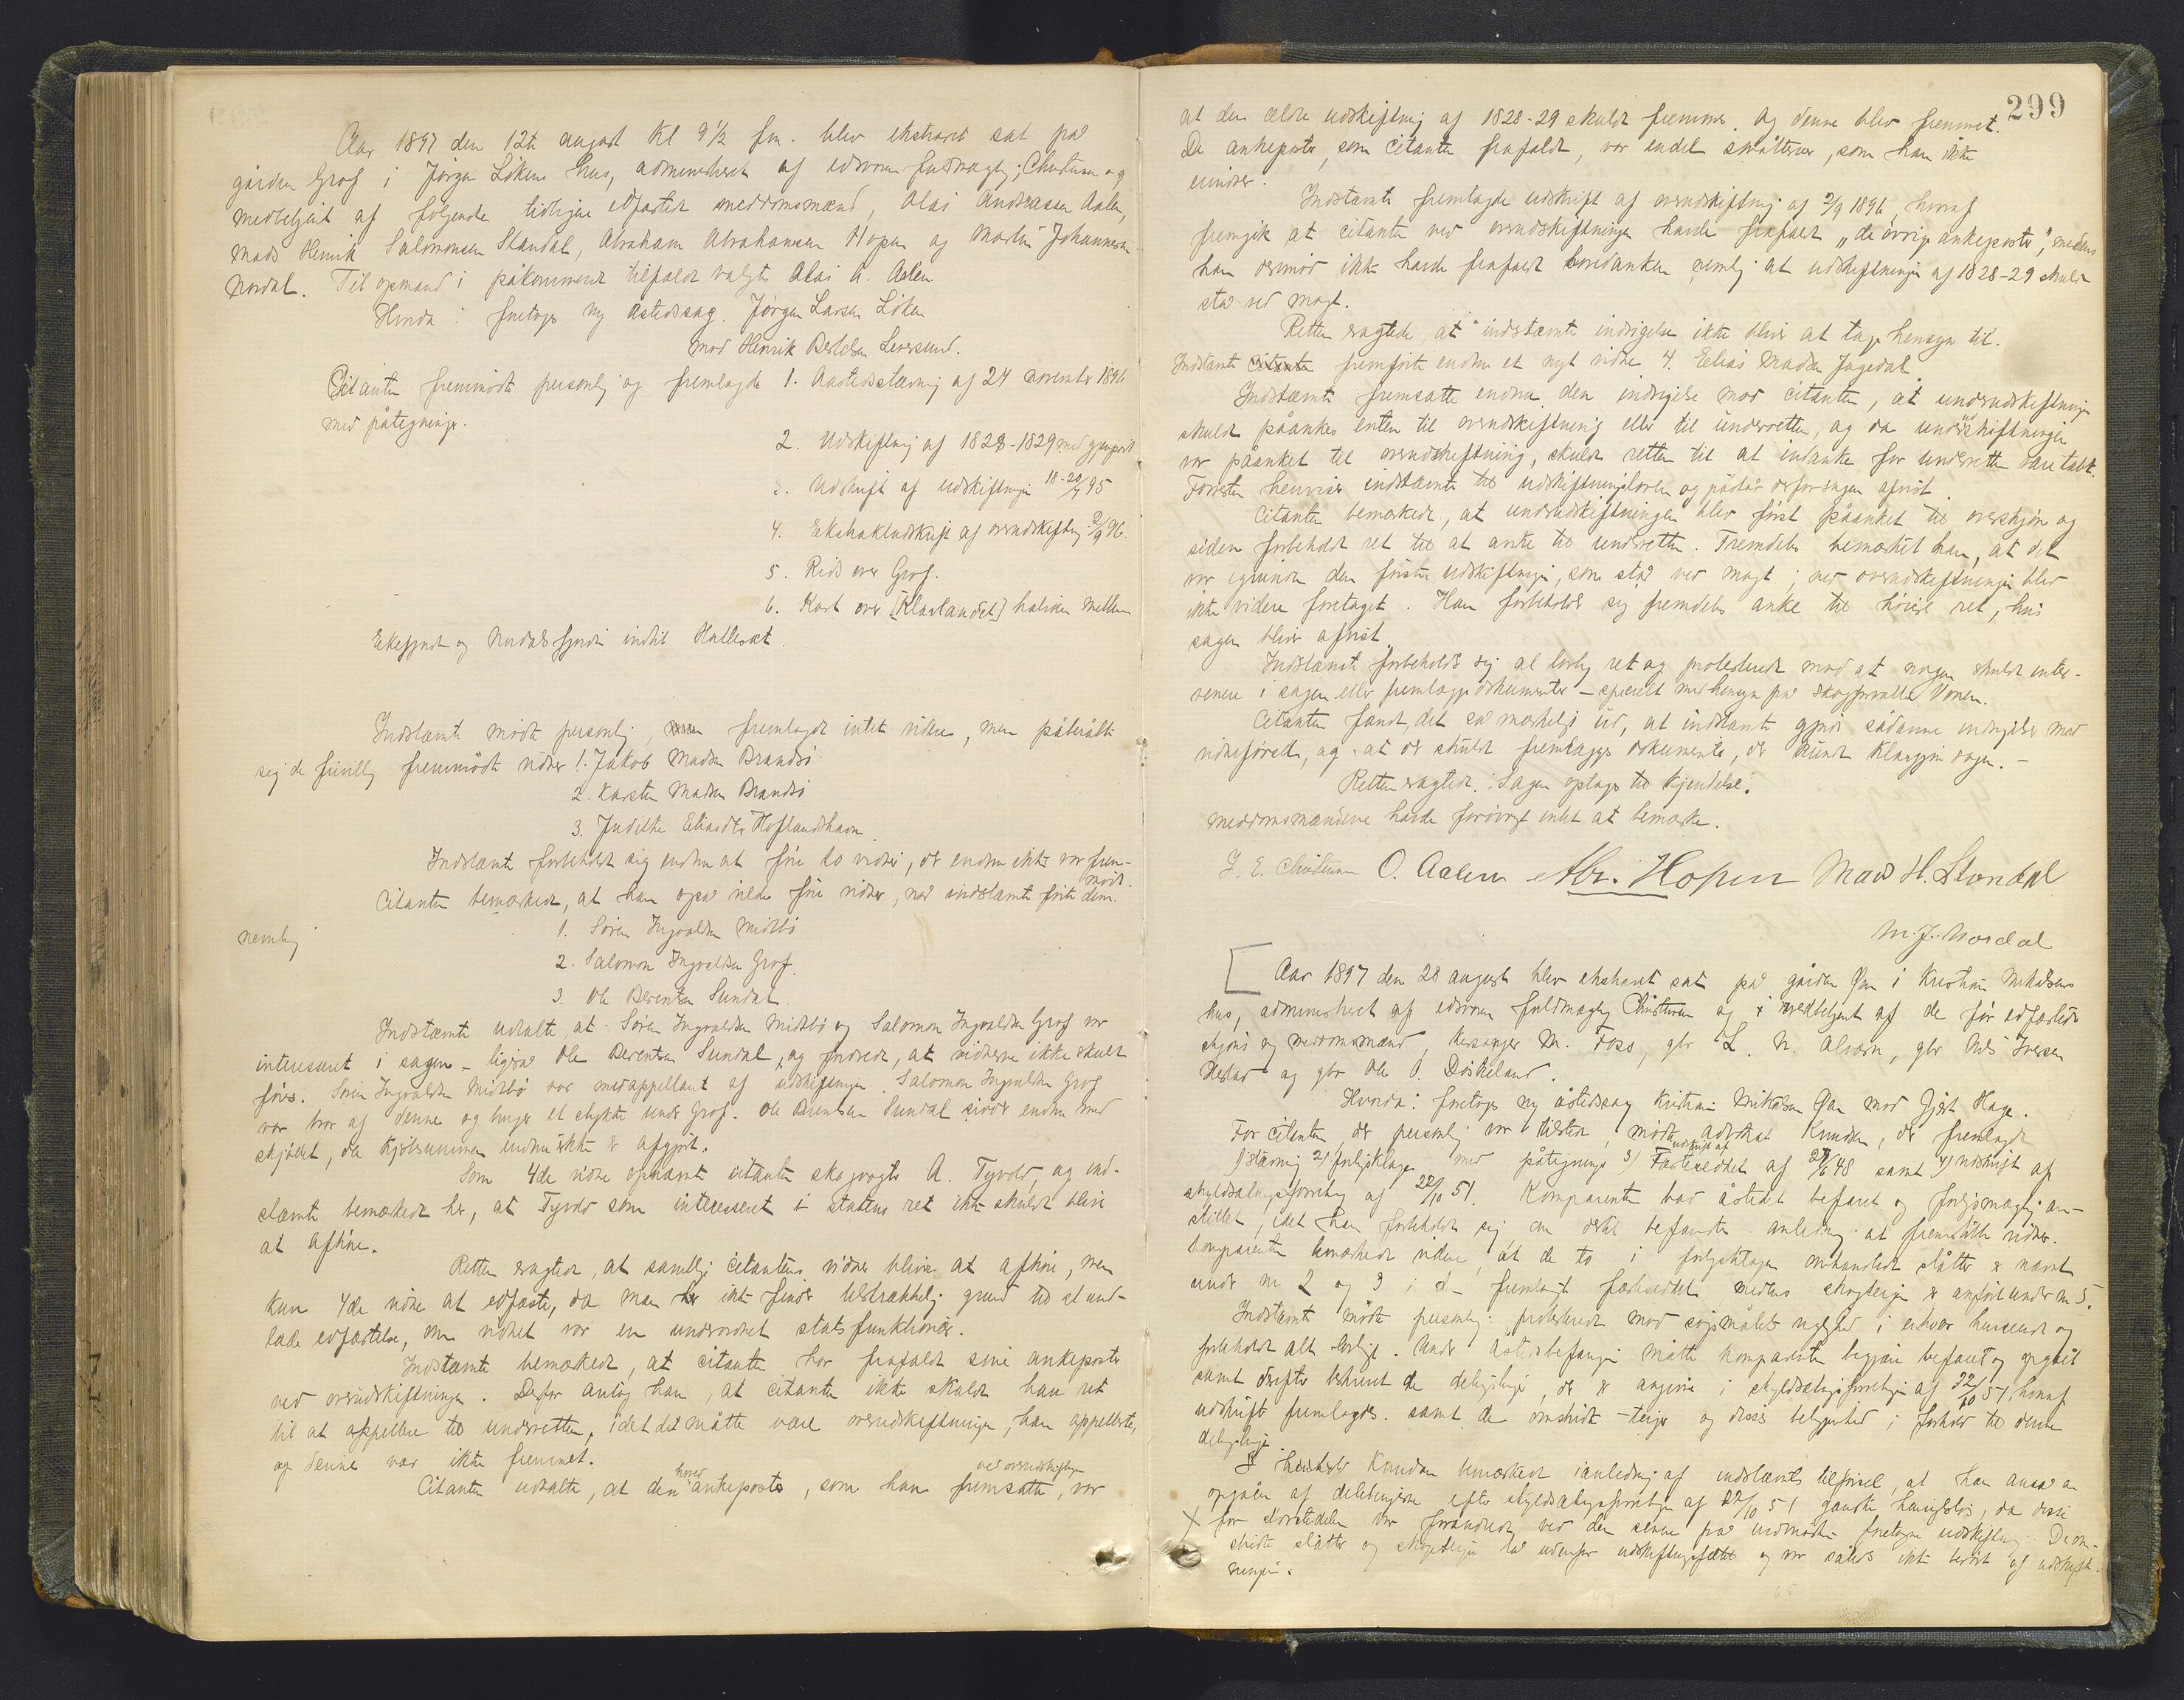 Aar 1897 den 12te august kl 9 1/2 fm. blev ekstraret sat på
gården Grof i Jørgen Løkens hus, administreret af edsvoren fuldmægtig Christensen og
medbetjent af følgende tidligere edfæstede meddomsmænd, Olai Andreassen Aalen,
Mads Henrik Salomonsen Standal, Abraham Abrahamsen Hopen og Martin Johannessen
Nordal. Til opmand i påkommende tilfælde valgtes Olai A. Aalen.
Hvorda: foretoges ny åstedssag. Jørgen Larsen Løken
mod Henrik Bertelsen Leversund.
Citanten fremmødte personlig og fremlagde 1. Aastedsstævning af 24 november 1896
med påtegninger.
2. Udskiftning af 1828-1829 med gjenpart
3. Udskrift af udskiftningen 18-20/7 95
4. Ekstraktudskrift af overudskiftning 2/9 96.
5. Rids over Grof.
6. Kart over [Klavlandet] halvøen mellem
Eikefjord og Nordalsfjord indtil Hallesæt.
Indstævnte mødte personlig, fremlagde intet videre, men påberåbte
sig de frivillig fremmødte vidner 1. Jakob Madsen Brandsø
2. Karsten Madsen Brandsø
3. Judithe Eliasdtr Hoflandshavn.
Indstævnte forbeholdt sig endnu at føre to vidner, der endnu ikke var frem-
mødt.
Citanten bemærkede, at han også vilde føre vidner, når indstævnte førte dem.
nemlig
1. Søren Ingvaldsen Midtbø
2. Salomon Ingvaldsen Grof.
3. Ole Berentsen Sundal.
Indstævnte udtalte at Søren Ingvaldsen Midtbø og Salomon Ingvaldsen Grof var
interesseret i sagen - ligeså Ole Berentsen Sundal, og fordrede, at vidnerne ikke skulde
føres. Søren Ingvaldsen Midtbø var medappellant af udskiftningen. Salomon Ingvaldsen Grof
var bror af denne og bruger et stykke under Grof. Ole Berentsen Sundal sidder endnu med
skjødet, da kjøbesummen endnu ikke er afgjort.
Som 4de vidne opnævnte citanten skogvogter A. Tyvold, og ind-
stævnte bemærkede her, at Tyvold som interesseret i statens ret ikke skulde blive
at afhøre.
Retten eragtede, at samtlige citantens vidner bliver at afhøre, men
kun 4de vidne at edfæste, da man her ikke finder tilstrækkelig grund til at und-
lade edfæstelse, om vidnet var en underordnet statsfunktionær.
Indstævnte bemærkede, at citanten har frafaldt sine ankeposter
ved overudskiftningen. Derfor antog han, at citanten ikke skulde have ret
til at appellere til underretten, idet det måtte være overudskiftningen, han appellerte,
og denne var ikke fremmet.
Citanten udtalte, at den hoved ankepost, som han ved overudskiftningen fremsatte, var
299
at den ældre udskiftning af 1828-29 skulde fremmes. Og denne blev fremmet.
De ankeposter, som citanten frafaldt, var endel småtterier, som han ikke
erindrer.
Indstævnte fremlagde udskrift af overudskiftning af 2/9 1896, hvoraf
fremgik at citanten ved overudskiftningen havde frafaldt "de øvrige ankeposter", medens
han derimod ikke havde frafaldt hovedanken nemlig at udskiftningen af 1828-29 skulde
stå ved magt.
Retten eragtede, at indstævntes indsigelse ikke bliver at tage hensyn til.
Indstævnte fremførte endnu et nyt vidne 4. Elias Madsen Jagedal.
Indstævnte fremsatte endnu den indsigelse mod citanten, at underudskiftningen
skulde påankes enten til overudskiftning eller til underretten, og da underudskiftningen
var påanket til overudskiftning, skulde retten til at indanke for underretten være tabt.
Forresten henviser indstævnte til udskiftningsloven og påstår derfor sagen afvist.
Citanten bemærkede, at underudskiftningen blev først påanket til overskjøn og
siden forbeholdt ret til at anke til underretten. Fremdeles bemærket han, at det
var egentlig den første udskiftning, som står ved magt; ved overudskiftningen blev
ikke videre foretaget. Han forbeholdt sig fremdeles anke til høiere ret, hvis
sagen blir afvist.
Indstævnte forbeholdt sig al lovlig ret og protesterede mod at nogen skulde inter-
venere i sagen eller fremlægge dokumenter - specielt med hensyn på skogforvalter Vonen.
Citanten fandt, det så mærkelig ud, at indstævnte gjorde sådanne indsigelser mod
vidneførsel, og at der skulde fremlægges dokumenter, der kunde klargjøre sagen. -
Retten eragtede: Sagen optages til kjendelse.
Meddomsmændene havde forøvrigt intet at bemærke.
J. E. Christensen O. Aalen Abr. Hopen Mads H. Standal
M. J. Nordal
[ Aar 1897 den 28 august blev ekstraret sat på gården Øen i Kristian Mikalsens
hus, administreret af edsvoren fuldmægtig Christensen og medbetjent af de før edfæstede
skjøns og meddomsmænd kirkesanger M. Foss, gbr L. N. Alværn, gbr Nils Iversen
Hestad og gbr Ole O. Døskeland.
Hvorda: foretoges ny åstedssag Kristian Mikalsen Øen mod Gjert Hage.
For citanten, der personlig var tilstede, mødte advokat Knudsen, der fremlagde
1) stævning 2) forligsklage med påtegninger 3) udskrift af Fæsteseddel af 27/6 48 samt 4) udskrift af
skyldsætningsforretning af 22/10 51. Komparenten bad åstedet befaret og forligsmægling an-
stillet, idet han forbeholdt sig om dertil befandtes anledning at fremstille vidner.
Komparenten bemærkede videre, at de to i forligsklagen omhandlede slåtter er nævnt
under no 2 og 3 i den fremlagte fæsteseddel medens skogteigen er anført under no 5.
Indstævnte mødte personlig: protesterede mod søgsmålets nyttighed i enhver henseende og
forbeholdt alt lovligt. Under åstedsbefaringen måtte komparenten begjære befaret og opgået
samt derefter beskrevet de delingslinjer, der er angivne i skyldsætningsforretningen af 22/10 51, hvoraf
udskrift fremlagdes. samt de omstridte teiger og disses beliggenhed i forhold til denne
delingslinje.
Knudsen bemærkede i anledning af indstævntes tilførsel, at han anså en
opgåen af delelinjerne efter skyldsætningsforretningen af 22/10 51 ganske hensigtsløs, da disse
X for størstedelen var forandrede ved den senere på indmarken foretagne udskiftning. De om-
stridte slåtter og skogteigen lå udenfor udskiftningsfeltet og var således ikke berørt af udskift-
ningen.